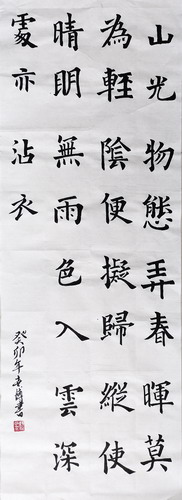 山光物態弄春暉莫
為輊陰便擬歸縱使
晴明無雨色入雲深
䖏亦沾衣
癸卯年